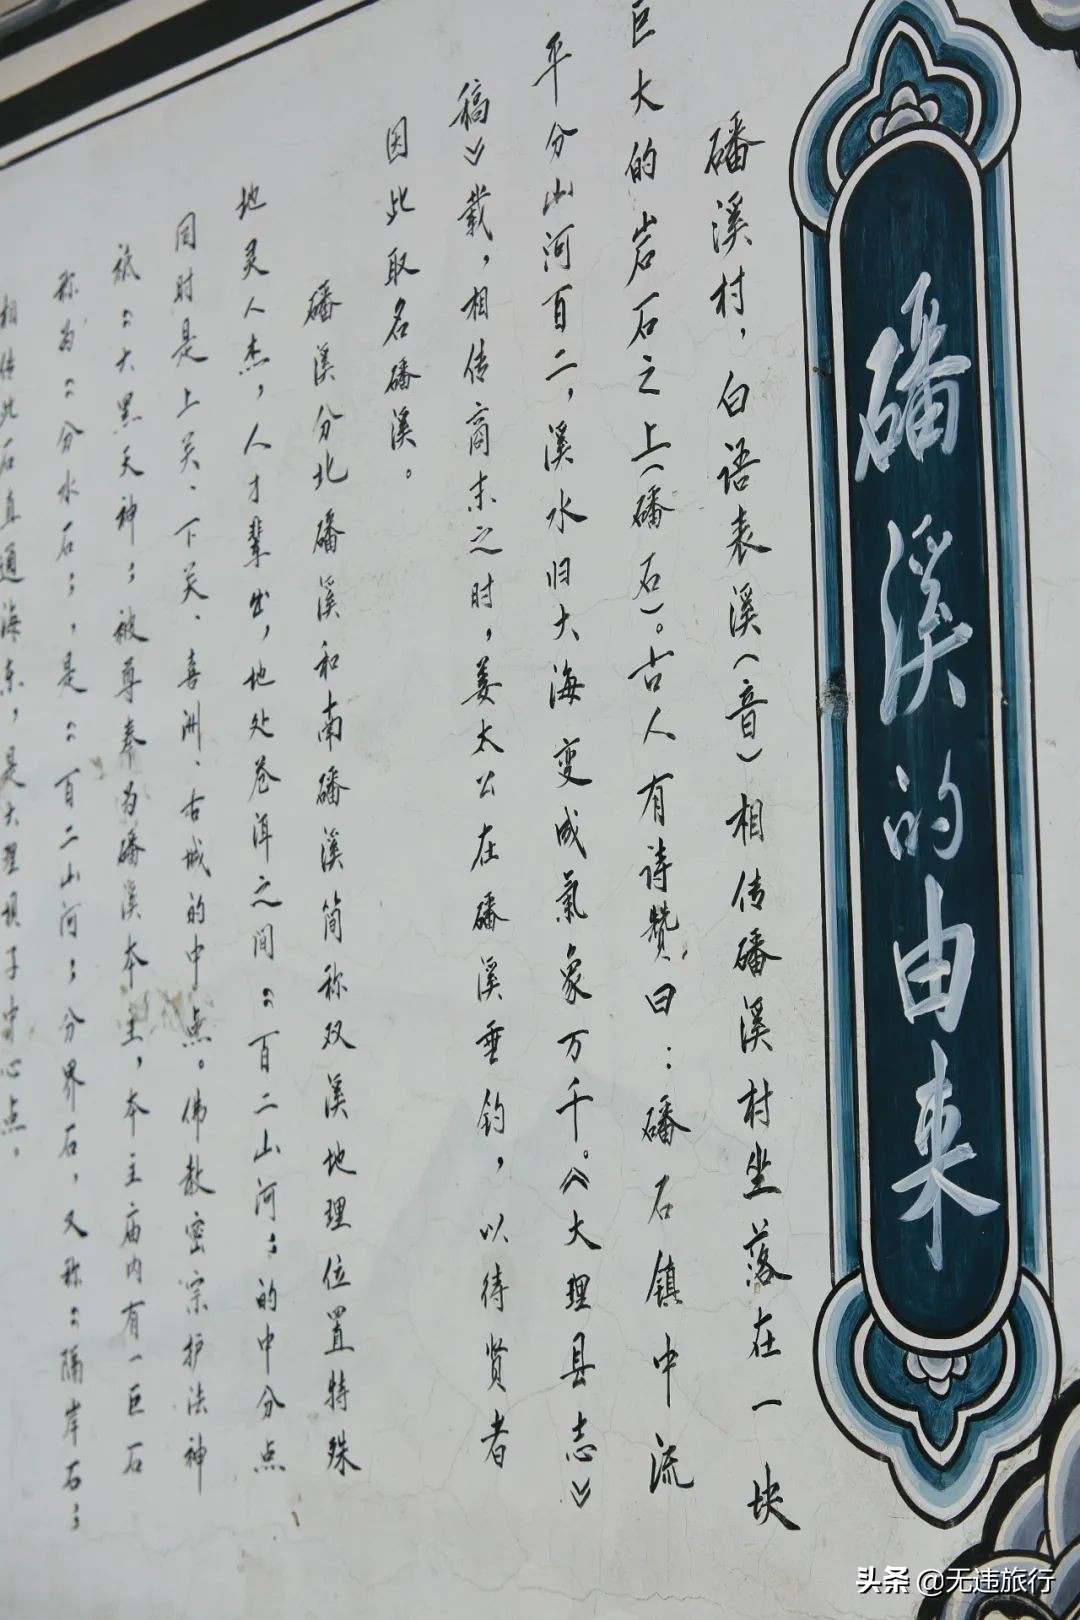 磻溪的由来
磻溪村，白语表溪（音）相传磻溪村坐落在一块
巨大的岩石之上（磻石）。古人有诗赞曰：磻石镇中流
平分山河百二，溪水归大海变成氣象万千。《大理县志》
稿》载，相传商末之时，姜太公在磻溪垂钓，以待贤者
因此取名磻溪。
磻溪分北磻溪和南磻溪简称双溪地理位置特殊
地灵人杰，人才辈出，地处苍洱之间“百二山河”的中分点
同时是上关、下关、喜洲、古城的中点。佛教密宗护法神
祗“大黑天神”被尊奉为磻溪本主，本主庙内有一巨石
称为“分水石”，是“百二山河”分界石，又称“隔岸石”
相传此石直通海东，是大理坝子中心点。
头条 @无违旅行